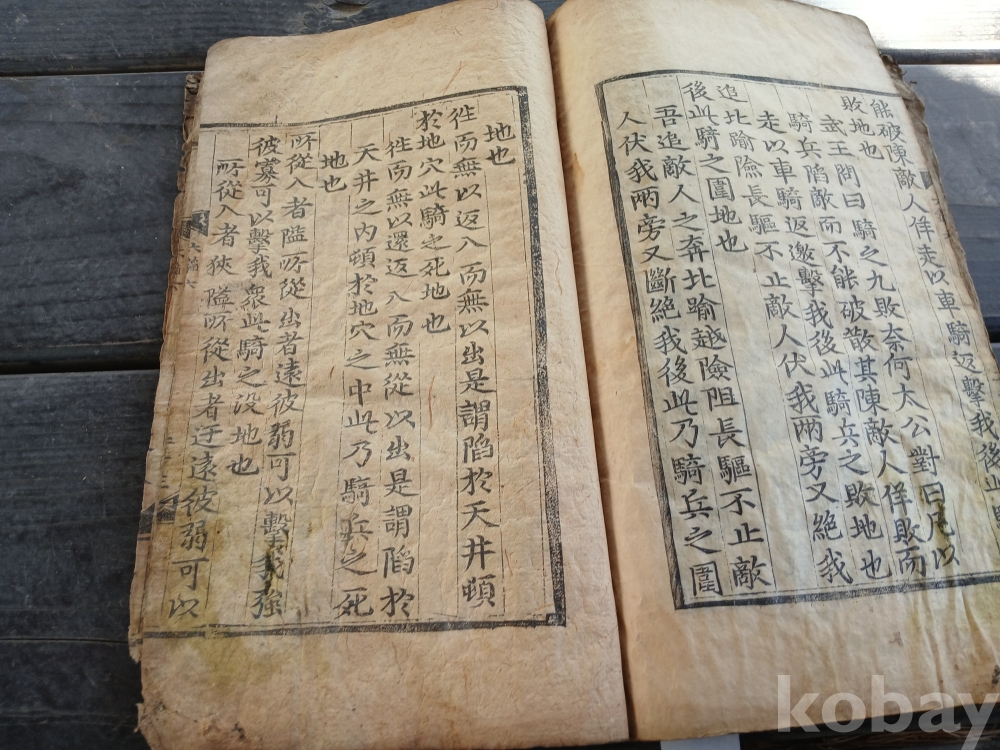 能破陳敵人佯走以車騎返擊我後此騎
敗地也
武王問曰騎之九敗奈何太公對曰凡以
騎兵陷敵而不能破散其陳敵人佯敗而
走以車騎返邀擊我後此騎兵之敗地也
追北踰險長驅不止敵人伏我兩旁又絕我
後此騎之圍地也
吾追敵人之奔北踰越險阻長驅不止敵
人伏我兩旁又斷絕我後此乃騎兵之圍
地也
徃而無以返入而無以出是謂陷於天井頓
於地穴此騎之死地也
徃而無以還返入而無從以出是謂陷於
天井之內頓於地穴之中此乃騎兵之死
地也
所從入者隘所從出者遠彼弱可以擊我強
彼寡可以擊我衆此騎之没地也
所從入者狹隘所從出者迂遠彼弱可以
kobay